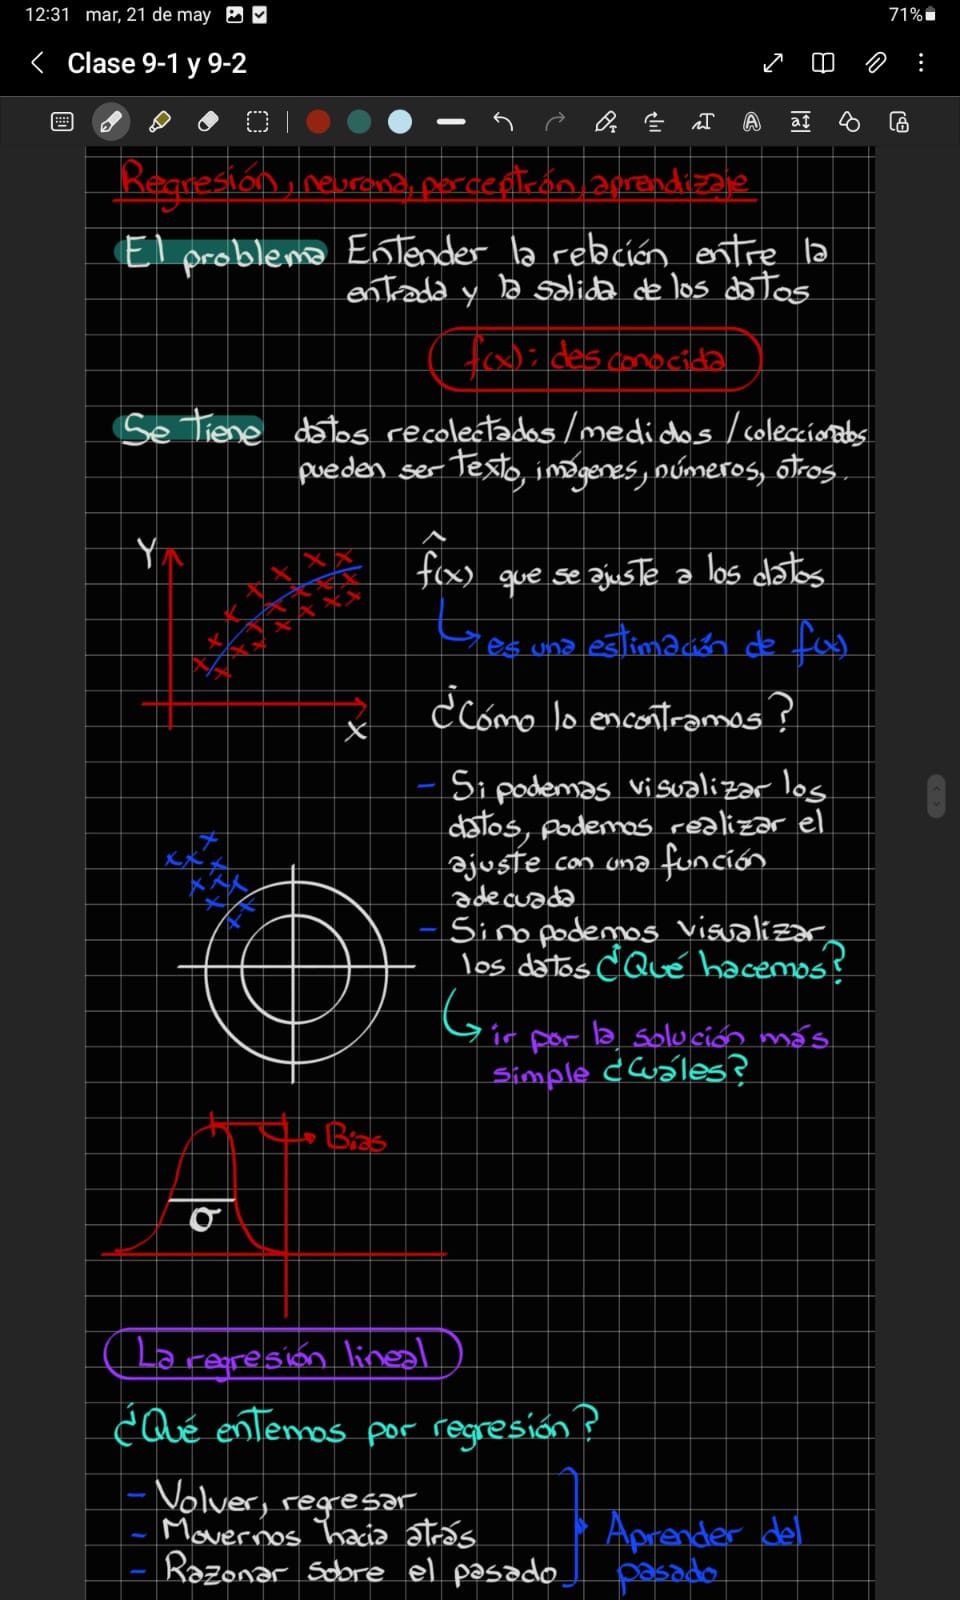 12:31 mar, 21 de may
71%
Clase 9-1 y 9-2
Regresión, neurona, perceptrón, aprendizaje
El problema Entender la relación entre la
entrada y la salida de los datos
f(x): desconocida
Se tiene datos recolectados/medidos/coleccionados
pueden ser texto, imágenes, números, otros.
Y
X
f̂(x) que se ajuste a los datos
es una estimación de f(x)
¿Cómo lo encontramos?
- Si podemos visualizar los
datos, podemos realizar el
ajuste con una función
adecuada
- Si no podemos visualizar
los datos ¿Qué hacemos?
ir por la solución más
simple ¿Cuáles?
Bias
σ
La regresión lineal
¿Qué entemos por regresión?
- Volver, regresar
- Movernos hacia atrás
- Razonar sobre el pasado
Aprender del
pasado